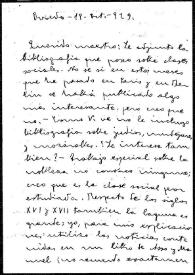 Oviedo - 19. Oct. - 929.
Querido maestro: Le adjunto la
bibliografía que poseo sobre clases
sociales. No sé si en estos meses
que ha pasado en París y en Ber-
lín se habrá publicado algo
más, interesante; pero creo que
no. - Como V. ve no le incluyo
bibliografía sobre judíos, mudéjares
y mozárabes. ¿Le interesa tam-
bién? - Trabajo especial sobre la
nobleza no conozco ninguno;
creo que es la clase social peor
estudiada. Respecto de los siglos
XVI y XVII también la laguna es
grande; yo, para mis explicacio-
nes, utilizo las noticias conte-
nidas en un libro de
nel (no recuerdo exactamente